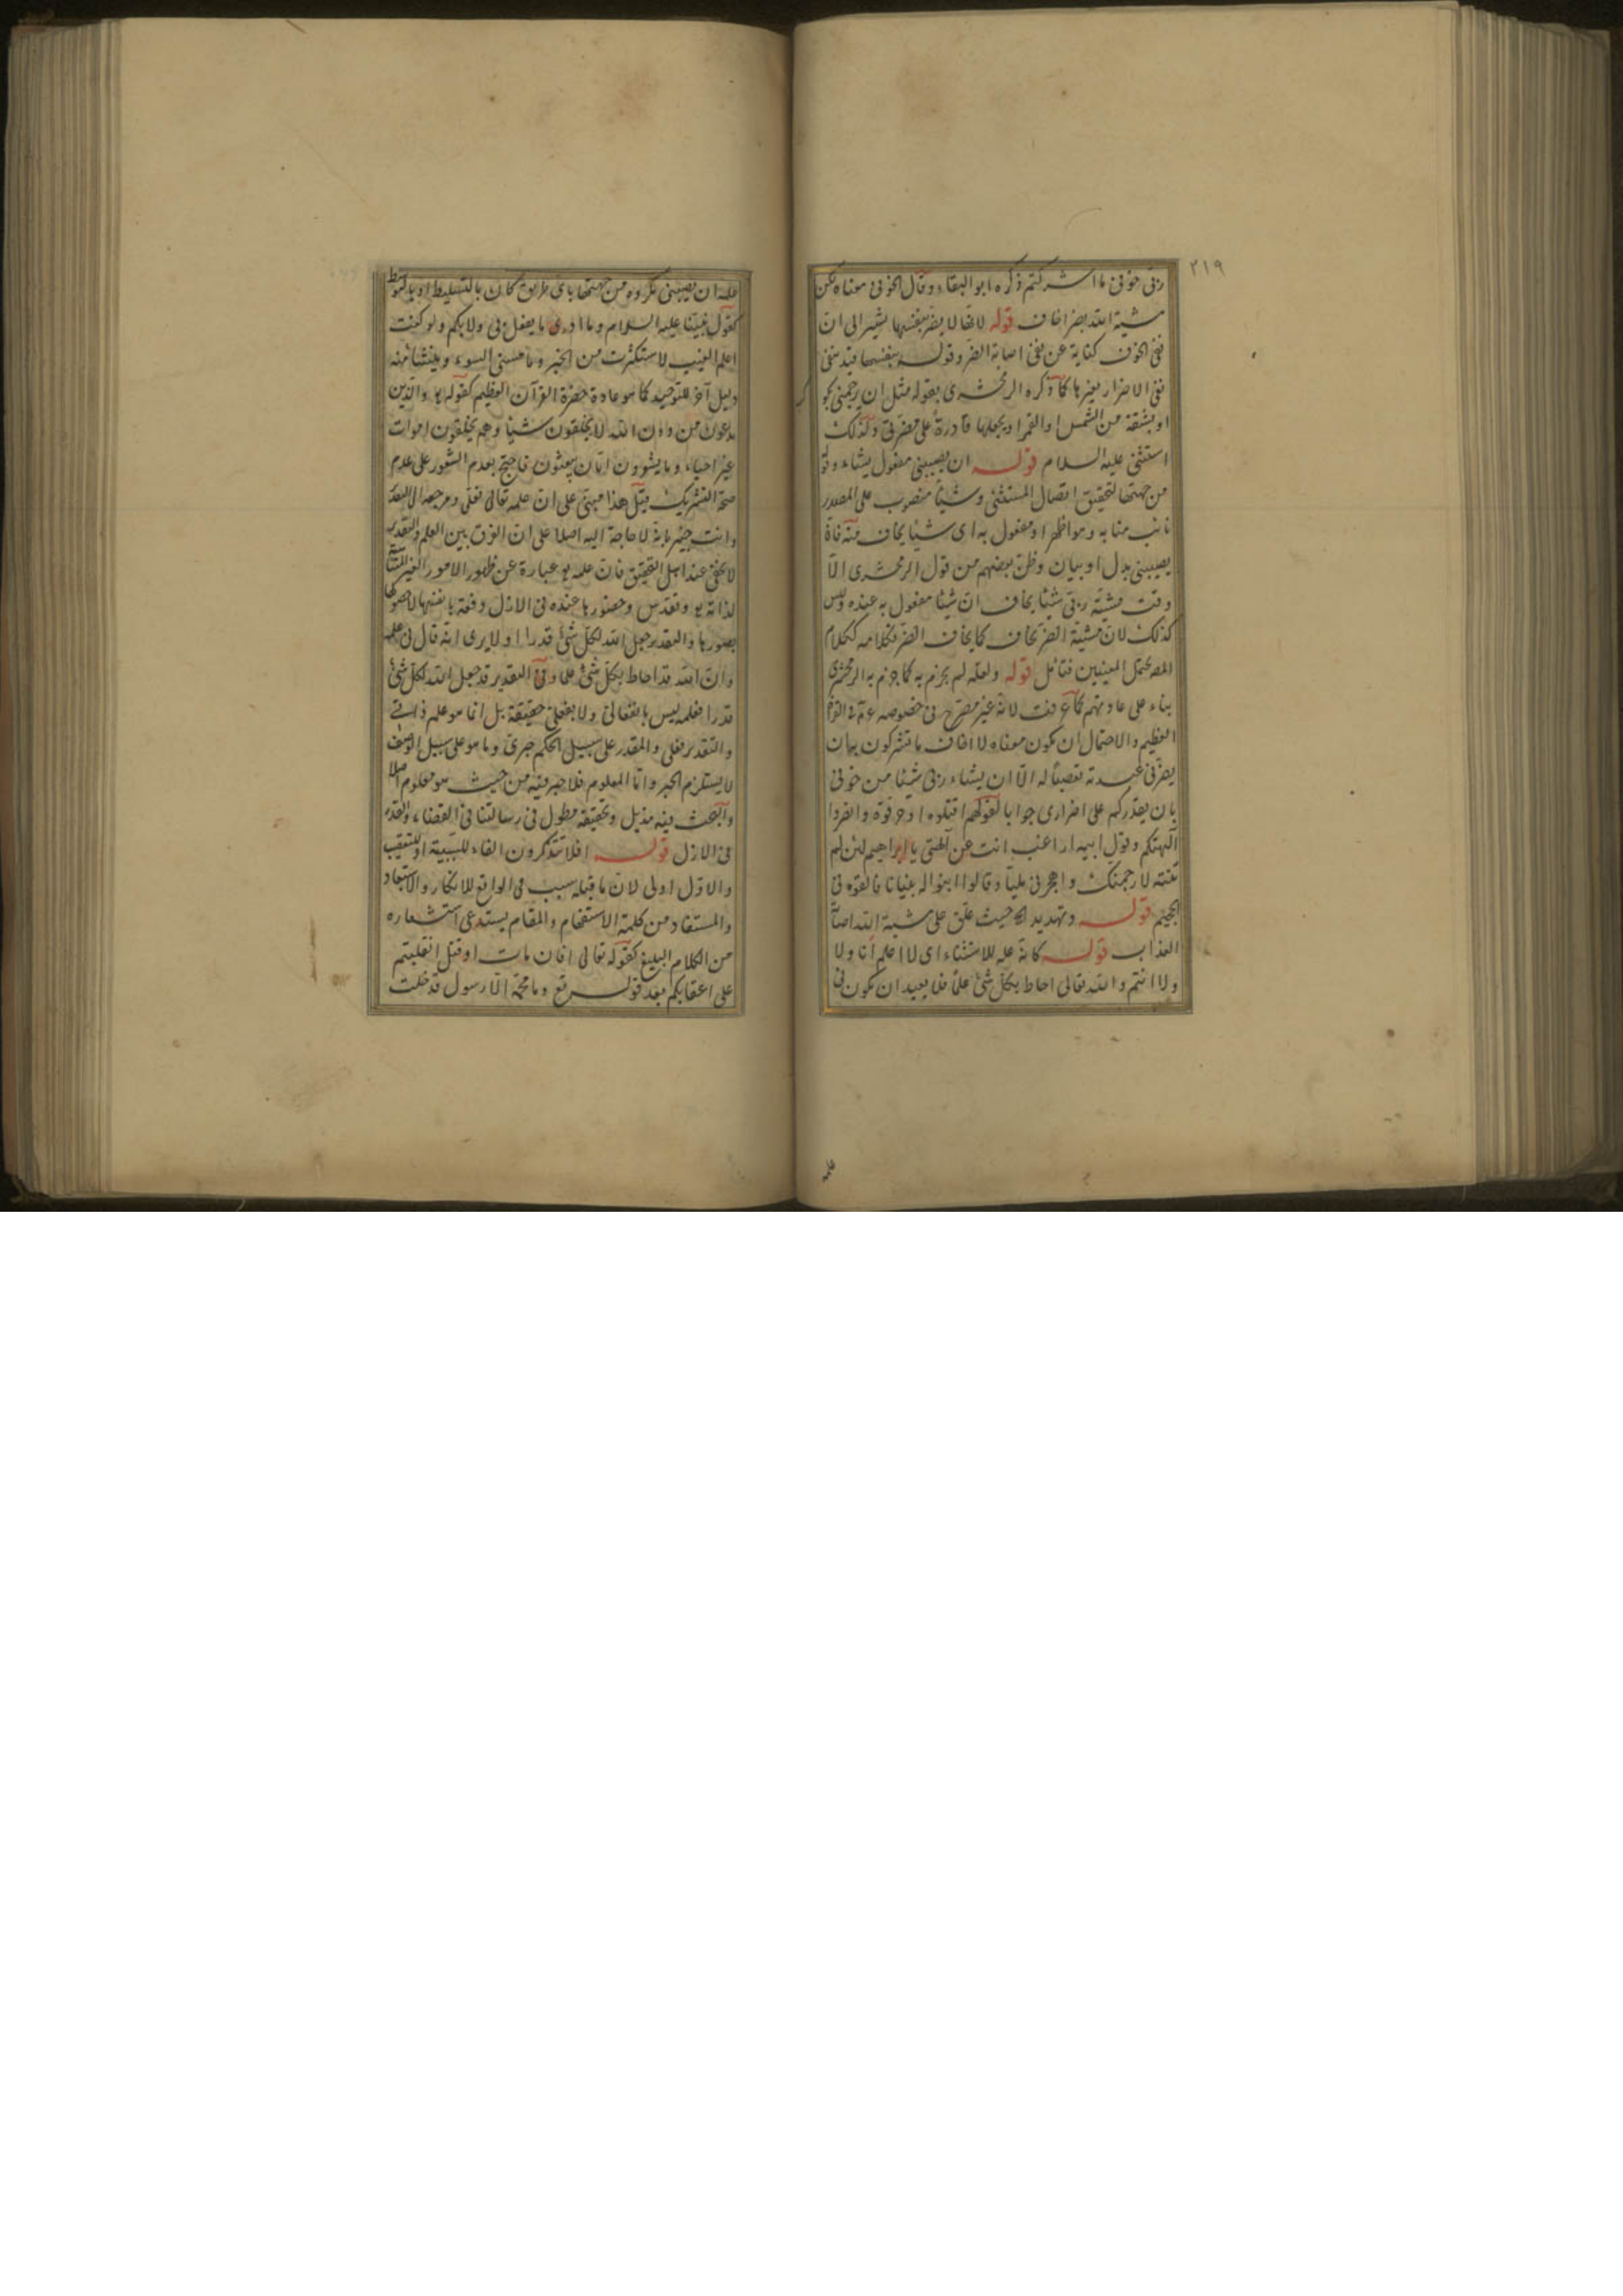 ٢١٩
ربى خوفى ما اشركتم ذكره ابو البقاء وقال الحوفى معناه لكن
مشية الله بضر اخاف قوله لانها لا يضر بنفسها يشير الى ان
نفى الخوف كناية عن نفى اصابة الضر وقوله بنفسها قيد بنفى
نفى الاضرار بغيرها كما ذكره الزمخشرى بقوله مثل ان يرجمنى بكو
او بشقة من الشمس او القمر او يجعلها قادرة على مضرتى ولذلك
استثنى عليه السلام قوله ان يصيبنى مفعول يشاء وقو
من جهتها لتحقيق اتصال المستثنى وشيئا منصوب على المصدر
نائب منابه وهو اظهر او مفعول به اى شيئا يخاف منه فان
يصيبنى بدل او بيان وظن بعضهم من قول الزمخشرى الا
وقت مشية ربى شيئا يخاف ان شيئا مفعول به عنده وليس
كذلك لان مشية الضر يخاف كما يخاف الضر فكلامه ككلام
المص يحتمل المعنيين فتامل قوله ولعله لم يجزم به كما جزم به الزمخشرى
بناء على عادتهم كما عرفت لانه غير مصرح فى خصوصه فى القرآن
العظيم والاحتمال ان يكون معناه لا اخاف ما تشركون بهان
يضرنى عبدته تعصبا له الا ان يشاء ربى شيئا من خوفى
بان يقدركم على اضرارى جوابا لقولهم اقتلوه او حرقوه وانصروا
آلهتكم وقول ابيه اراغب انت عن آلهتى يا ابراهيم لئن لم
تنته لارجمنك واهجرنى مليا وقالوا ابنوا له بنيانا فالقوه فى
الجحيم قوله وتهديد الخ حيث علق على مشية الله اصابة
العذاب قوله كانه علة للاستثناء اى لا اعلم انا ولا
ولا انتم والله تعالى احاط بكل شئ علما فلا يبعد ان يكون فى
علمه
علمه ان يصيبنى مكروه من جهتها باى طريق كان بالتسليط او بالتوسط
كقول نبينا عليه السلام وما ادرى ما يفعل بى ولا بكم ولو كنت
اعلم الغيب لاستكثرت من الخير وما مسنى السوء وينشأ منه
دليل آخر للتوحيد كما هو عادة حضرة القرآن العظيم كقوله والذين
يدعون من دون الله لا يخلقون شيئا وهم يخلقون اموات
غير احياء وما يشعرون ايان يبعثون فاحتج بعدم الشعور على عدم
صحة التشريك قيل هذا مبنى على ان علمه تعالى فعلى ومرجعه الى القد
وانت خبير بانه لا حاجة اليه اصلا على ان الفرق بين العلم والتقدير
لا يخفى عند اهل التحقيق فان علمه عبارة عن ظهور الامور الغير المتناهية
لذاته وتقدس وحضورها عنده فى الازل دفعة بانفسها لا بحصول
بصورها والتقدير جعل الله لكل شئ قدرا اولا يرى انه قال فى علمه
وان الله قد احاط بكل شئ علما وفى التقدير قد جعل الله لكل شئ
قدرا فعلمه ليس بانفعالى ولا بفعلى حقيقة بل انما هو علم ذاتى
والتقدير فعلى والمقدر على سبيل الحكم جبرى وما هو على سبيل الوصف
لا يستلزم الجبر واما المعلوم فلا جبر فيه من حيث هو معلوم اصلا
والبحث فيه مذيل وتحقيقه مطول فى رسالتنا فى القضاء والقدر
فى الازل قوله افلا تتذكرون الفاء للسببية او للتعقيب
والاول اولى لان ما قبله سبب فى الواقع للانكار والاستبعاد
والمستفاد من كلمة الاستفهام والمقام يستدعى استشعاره
من الكلام البليغ كقوله تعالى افان مات او قتل انقلبتم
على اعقابكم بعد قوله تع وما محمد الا رسول قد خلت